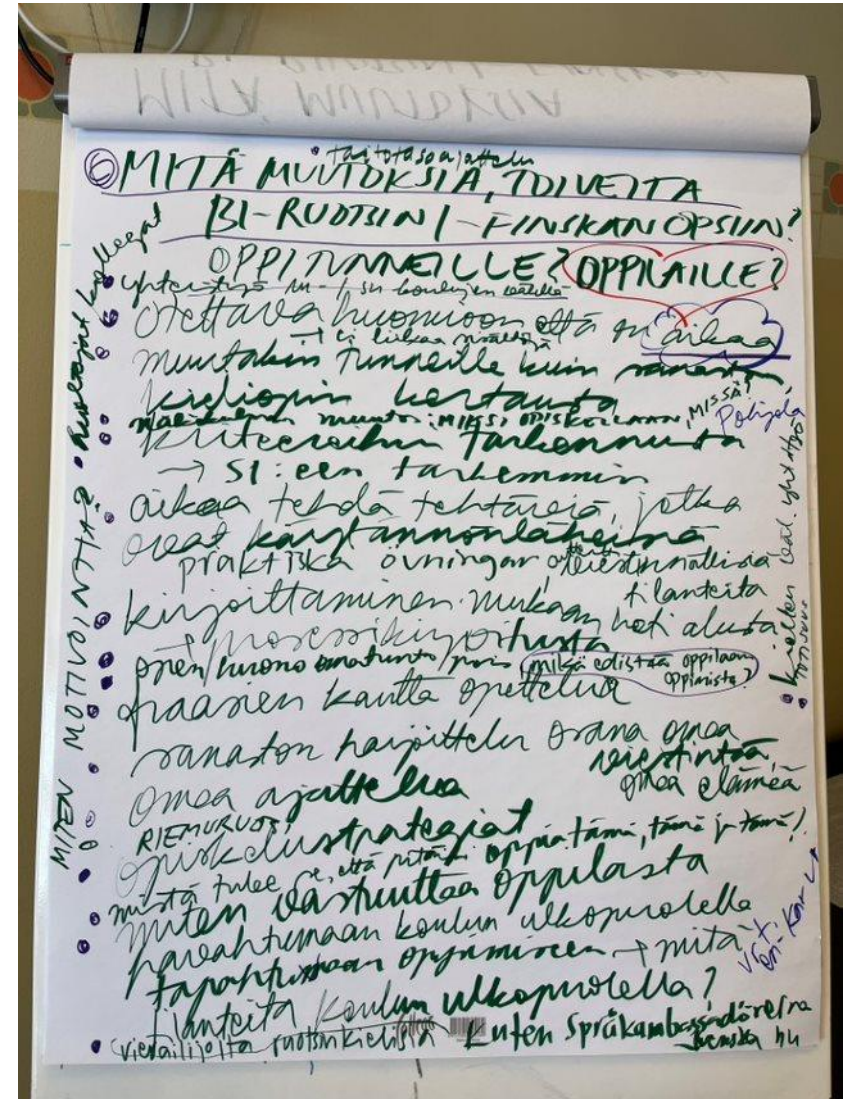 MITÄ MUUTOKSIA
⑥ MITÄ MUUTOKSIA, TOIVEITA
• taitotasoajattelu
B1-RUOTSIN / -FINSKAN OPSIIN?
OPPITUNNEILLE? OPPILAILLE?
yhteistyö ru- / su koulujen välillä
otettava huomioon että on aikaa
→ ei liikaa
muutakin tunneille kuin sanaston
kieliopin kertausta
näkökulman muutos: MIKSI OPISKELLAAN, MISSÄ?
Pohjola
kriteereihin tarkennusta
→ S1:een tarkemmin
aikaa tehdä tehtäviä, jotka
ovat käytännönläheisiä
praktiska övningar
viestinnällisiä
tilanteita
kirjoittaminen mukaan heti alusta
→ prosessikirjoitusta
pien/huono omatunto/
mikä edistää oppilaan
oppimista?
fraasien kautta opettelua
sanaston harjoittelu osana omaa
viestintää,
omaa ajattelua
omaa elämää
RIEMURUOTSI
opiskelustrategiat
mistä tulee se, että pitäisi oppia tämä, tämä ja tämä!
miten vastuuttaa oppilasta
havahtumaan koulun ulkopuolella
tapahtuvaan oppimiseen → mitä
tilanteita koulun ulkopuolella?
• vierailijoita ruotsinkielisiä kuten Språkambassadörerna
Svenska nu
MITEN MOTIVOINTIA? • kollegat
• kielten väl. yht.työ
vrt.